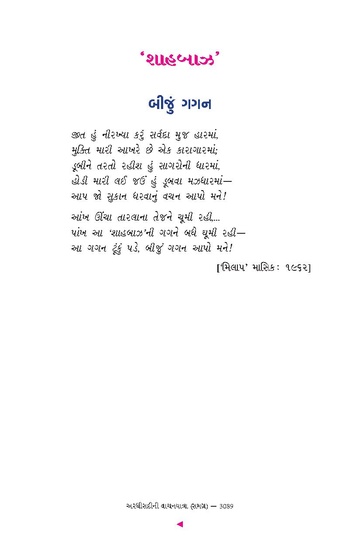 ‘શાહબાઝ’
બીજું ગગન
જીત હું નીરખ્યા કરું સર્વદા મુજ હારમાં,
મુક્તિ મારી આખરે છે એક કારાગારમાં;
ડૂબીને તરતો રહીશ હું સાગરોની ધારમાં,
હોડી મારી લઈ જઉં હું ડૂબવા મઝધારમાં—
આપ જો સુકાન ધરવાનું વચન આપો મને!
આંખ ઊંચા તારલાના તેજને ચૂમી રહી...
પાંખ આ ‘શાહબાઝ’ની ગગને બધે ઘૂમી રહી—
આ ગગન ટૂંકું પડે, બીજું ગગન આપો મને!
[‘મિલાપ’ માસિક: ૧૯૬૨]
અરધીસદીની વાચનયાત્રા (સમગ્ર) — 3089
◀